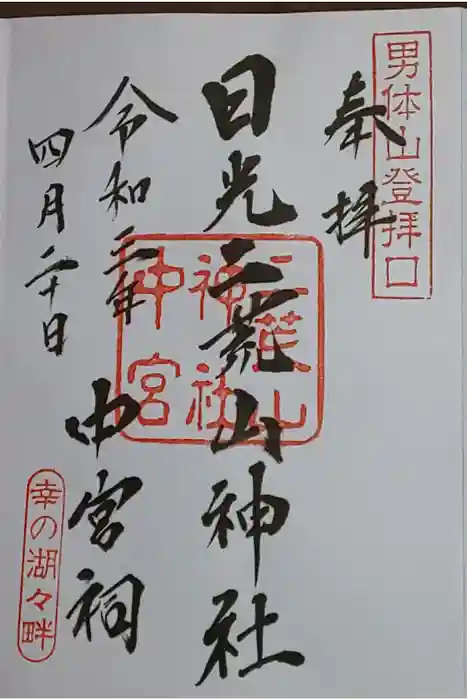 男体山登拝口
奉拝
日光二荒山神社
二荒山
神社
中宮
中宮祠
令和三年
四月二十日
幸の湖々畔